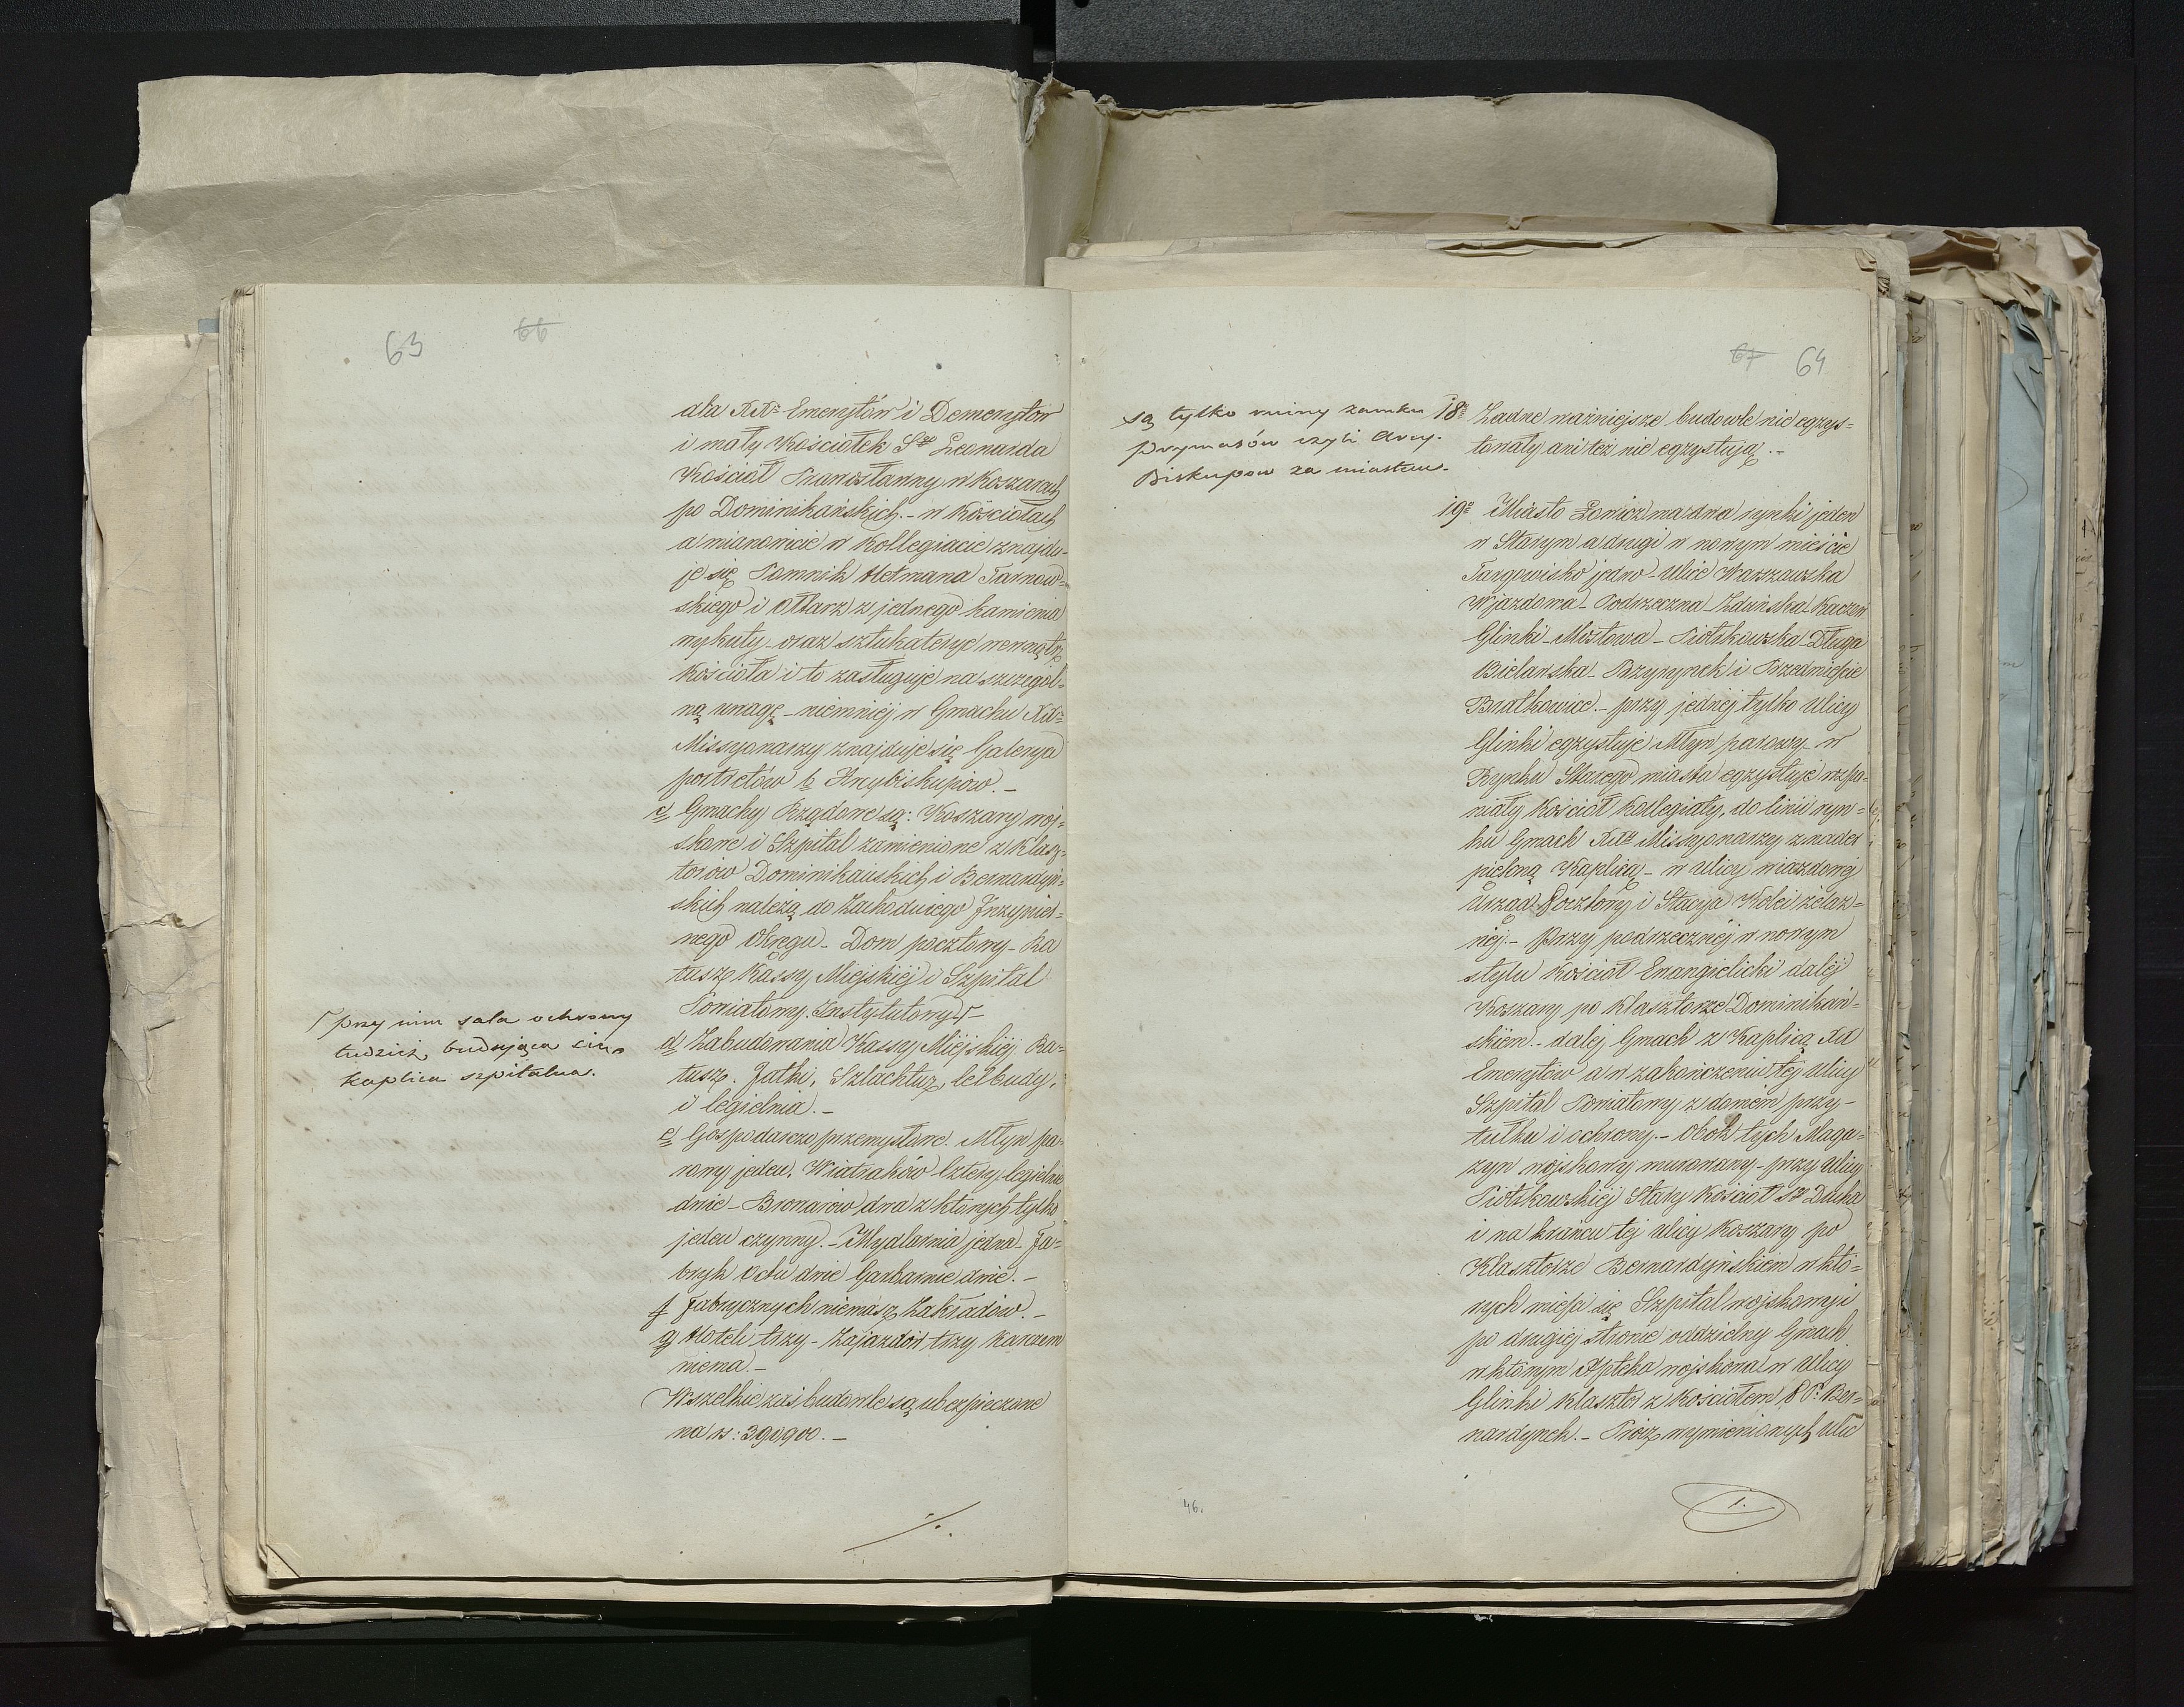 63 66
dla XXży Emerytów i Demerytów
i mały Kościołek Sgo Leonarda
Kościoł Prawosławny w Koszarach
po Dominikańskich. – w Kościołach
a mianowicie w Kollegiacie znajdu-
je się Pomnik Hetmana Tarnow-
skiego i Ołtarz z jednego kamienia
wykuty – oraz sztukaterye wewnątrz
Kościoła i to zasługuje na szczegól-
ną uwagę – niemniéj w Gmachu XX
Missyonarzy znajduje się Galerya
portretów b. Arcybiskupów. –
c/ Gmachy Rządowe są: Koszary woj-
skowe i Szpital zamienione z Klasz-
torów Dominikańskich i Bernardyń-
skich należą do Zachodniego Inżynier-
nego Okręgu – Dom pocztowy – Ra
tusz Kassy Miejskiéj i Szpital
Powiatowy. Instytutowy Γ –
Γ przy nim sala ochrony
tudzież budująca się
kaplica szpitalna.
d/ Zabudowania Kassy Miejskiéj. Ra-
tusz. Jatki, Szlachtuz, Celbudy,
i Cegielnia. –
e/ Gospodarczo przemysłowe. Młyn pa-
rowy jeden, Wiatraków Cztery, Cegielnie
dwie – Browarów dwa z których tylko
jeden czynny. – Mydlarnia jedna – Fa-
bryk Octu dwie Garbarnie dwie. –
f Fabrycznych niemasz Zakładów. –
g/ Hoteli trzy – Zajazdów trzy Karczem
niema. –
Wszelkie zaś budowle są ubezpieczone
na rs: 390,900. –
/.
67 64
są tylko ruiny zamku
Prymasów czyli Arcy-
Biskupow za miastem.
18º Żadne ważniejsze budowle nie egzys-
towały ani też nie egzystują. –
19º Miasto Łowicz ma dwa rynki jeden
w Starym a drugi w nowym mieście
Targowisko jedno – Ulice Warszawska
Wjazdowa – Podrzeczna – Zduńska – Kaczew
Glinki – Mostowa – Piotrkowska – Długa
Bielawska – Przyrynek i Przedmieście
Bratkowice. – przy jednéj tylko Ulicy
Glinki egzystuje Młyn parowy – w
Rynku Starego miasta egzystuje wspa-
niały Kościoł Kollegiaty, do linii ryn-
ku Gmach XXży Missyonarzy z nader
piękną Kaplicą – w Ulicy wiazdowéj
Urząd Pocztowy i Stacyja Kolei żelaz-
néj. – Przy podrzecznéj w nowym
stylu Kościoł Ewangielicki daléj
Koszary po Klasztorze Dominikań-
skiem. – dalej Gmach z Kaplicą XX
Emerytów a w zakończeniu téj Ulicy
Szpital Powiatowy z domem przy-
tułku i ochrony. – Obok tych Maga-
zyn wojskowy murowany – przy Ulicy
Piotrkowskiéj Stary Kościoł Sgo Ducha
i na krańcu tej Ulicy Koszary po
Klasztorze Bernardyńskiem w któ-
rych mieści się Szpital wojskowy i
po drugiéj stronie oddzielny Gmach
w którym Apteka wojskowa w Ulicy
Glinki Klasztor z Kościołem P P. Ber-
nardynek. – Prócz wymienionych Ulic
46.
1.